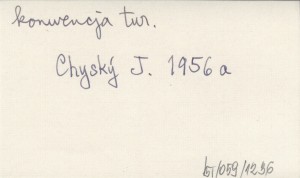 konwencja tur.
Chyský J. 1956 a
/059/1256